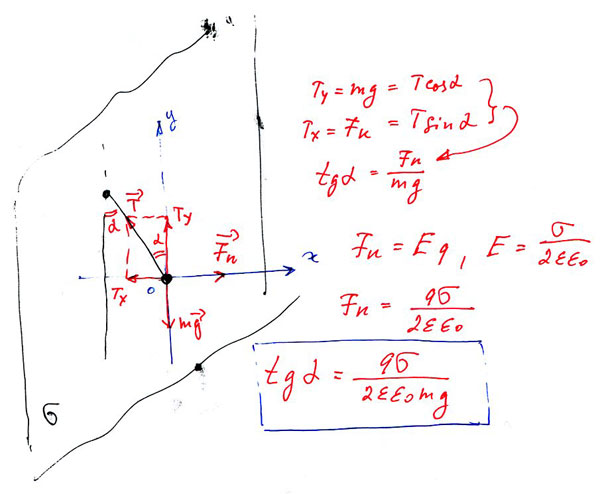 y
T_y = mg = T cos α
T_x = F_к = T sin α
tg α = F_к / mg
α T⃗ T_y
α F⃗_к x
T_x 0
mg⃗
F_к = E q, E = σ / 2εε₀
F_к = qσ / 2εε₀
tg α = qσ / 2εε₀mg
σ